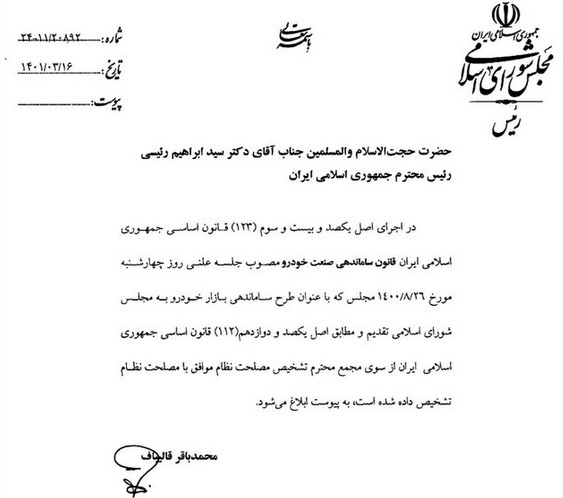 باسمه تعالی
جمهوری اسلامی ایران
مجلس شورای اسلامی
رئیس
شماره: ۲۴۰۱۱/۲۰۸۹۲
تاریخ: ۱۴۰۱/۰۳/۱۶
پیوست:
حضرت حجت‌الاسلام والمسلمین جناب آقای دکتر سید ابراهیم رئیسی
رئیس محترم جمهوری اسلامی ایران
در اجرای اصل یکصد و بیست و سوم (۱۲۳) قانون اساسی جمهوری
اسلامی ایران قانون ساماندهی صنعت خودرو مصوب جلسه علنی روز چهارشنبه
مورخ ۱۴۰۰/۸/۲۶ مجلس که با عنوان طرح ساماندهی بازار خودرو به مجلس
شورای اسلامی تقدیم و مطابق اصل یکصد و دوازدهم(۱۱۲) قانون اساسی جمهوری
اسلامی ایران از سوی مجمع محترم تشخیص مصلحت نظام موافق با مصلحت نظام
تشخیص داده شده است، به پیوست ابلاغ می‌شود.
محمدباقر قالیباف